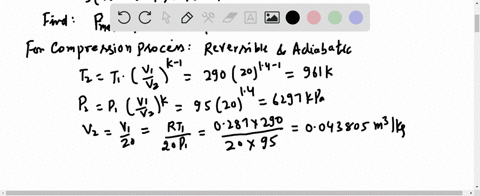 Find: P
For Compression Process: Reversible & Adiabatic
T₂ = T₁ · (V₁/V₂)^(k-1) = 290 (20)^(1.4-1) = 961 K
P₂ = P₁ (V₁/V₂)^k = 95 (20)^1.4 = 6297 kPa
V₂ = V₁/20 = RT₁/20P₁ = 0.287×290/20×95 = 0.043805 m³/kg